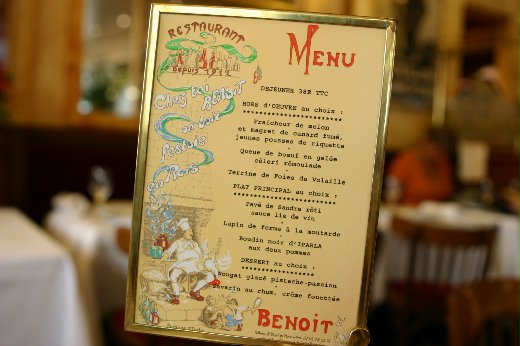 RESTAURANT
depuis 1912
Chez toi BENOIT
on boit
festoie
en Rois
MENU
DEJEUNER 38€ TTC
HORS d'OEUVRE au choix :
************************
Fraîcheur de melon
et magret de canard fumé,
jeunes pousses de riquette
Queue de boeuf en gelée
céleri rémoulade
Terrine de Foies de Volaille
PLAT PRINCIPAL au choix :
************************
Pavé de Sandre rôti
sauce lie de vin
Lapin de ferme à la moutarde
Boudin noir d'IPARLA
aux deux pommes
DESSERT au choix :
****************
Nougat glacé pistache-passion
au rhum, crème fouettée
BENOIT